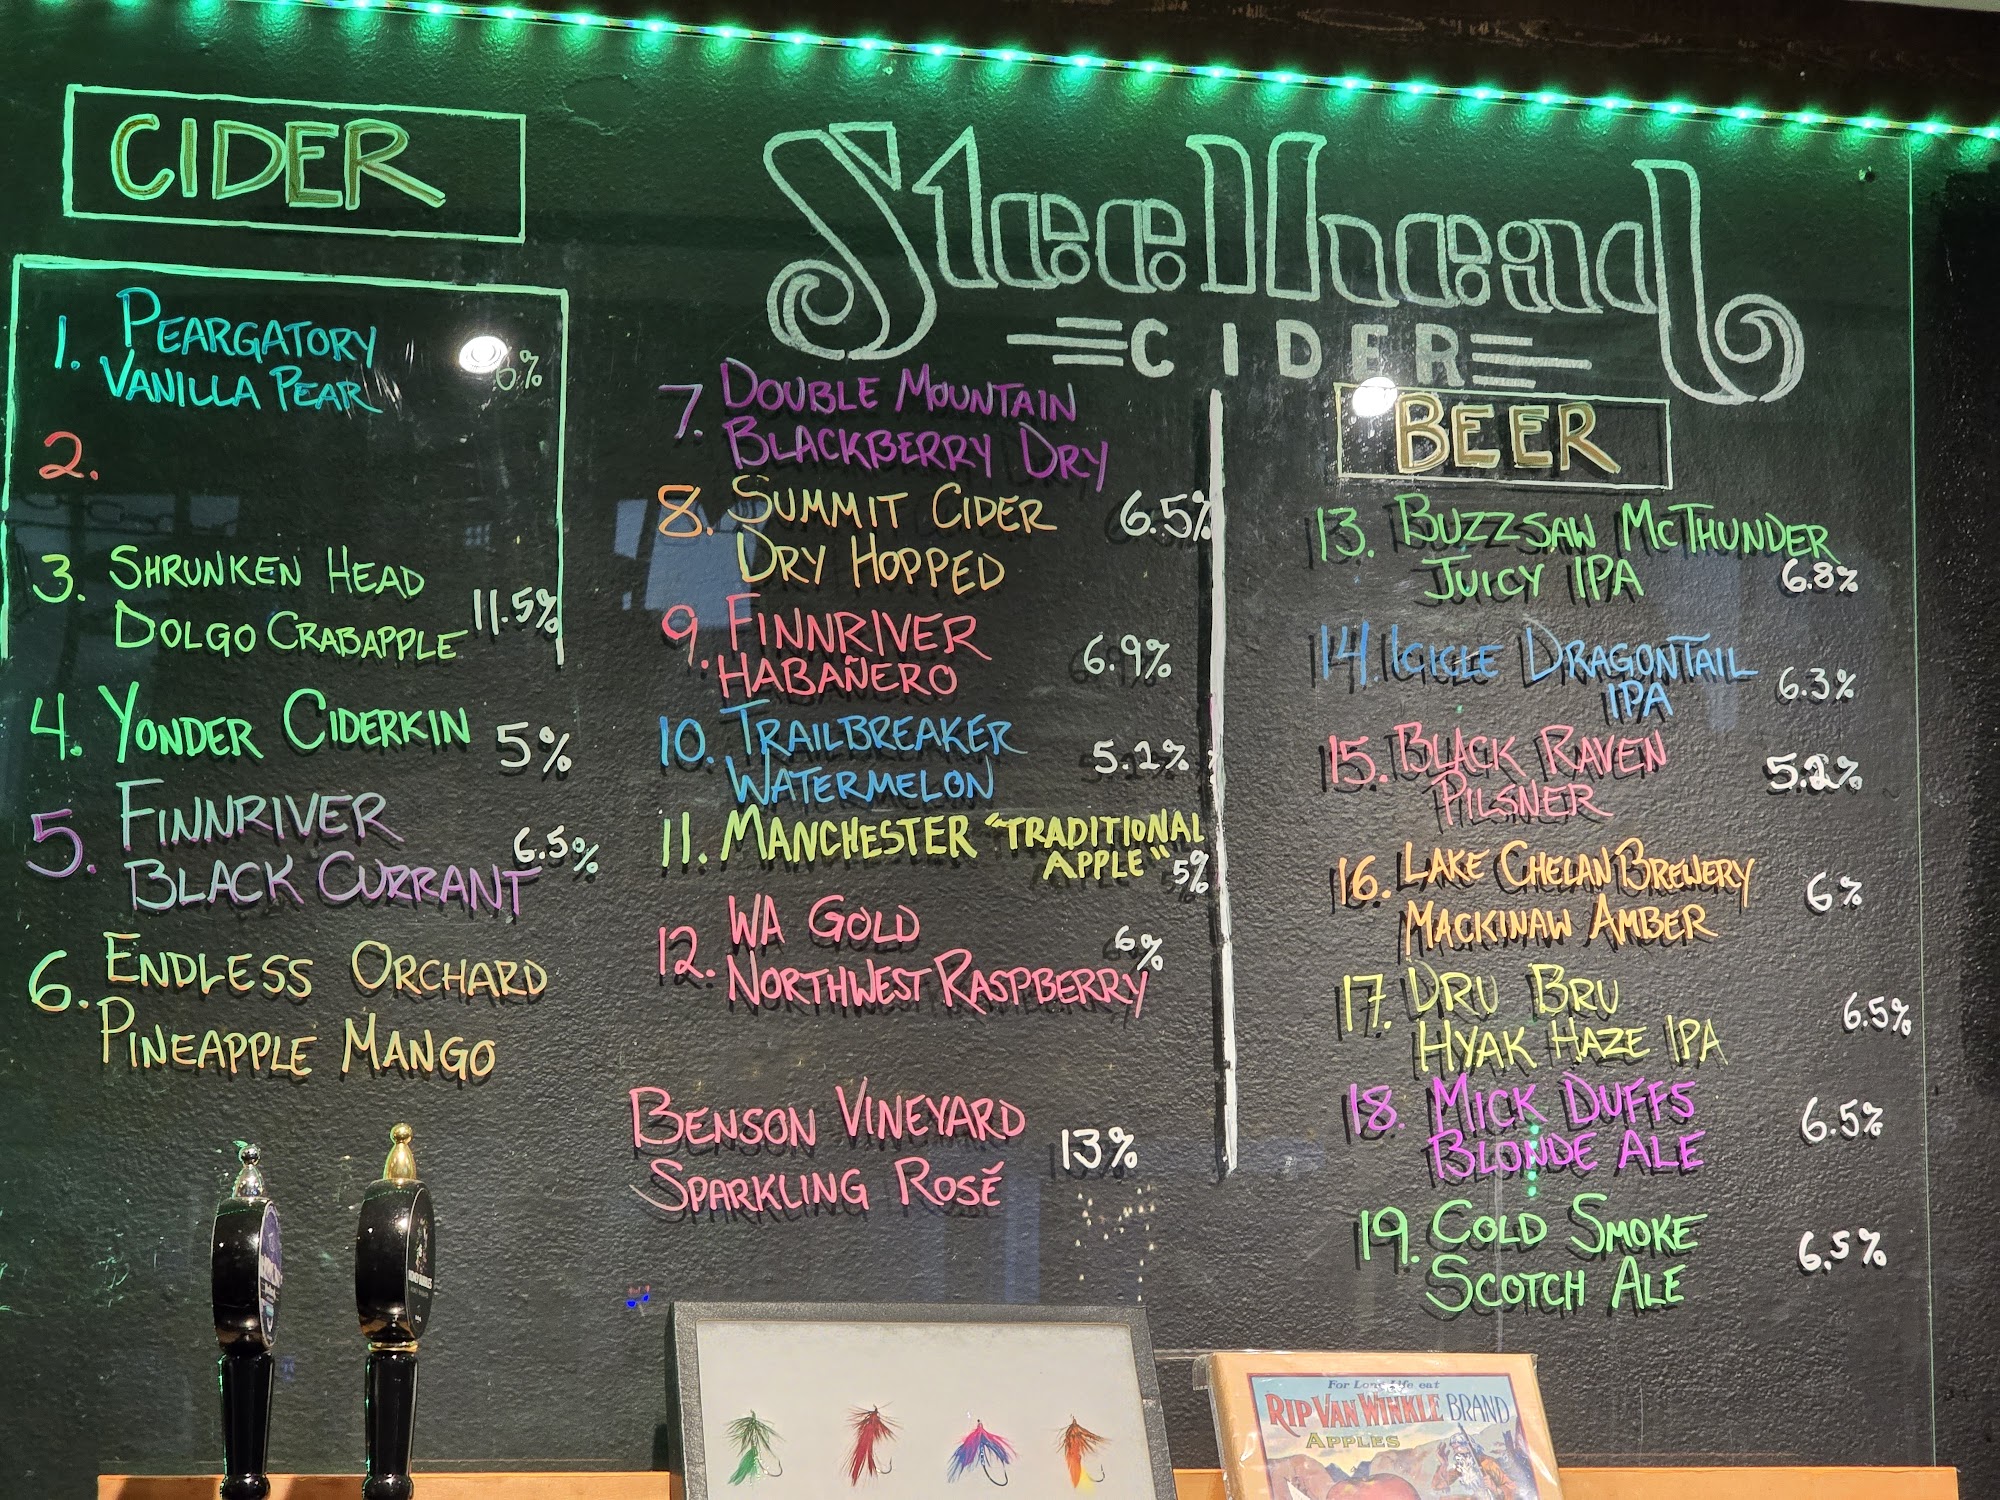 CIDER
Steelhead
CIDER
1. PEARGATORY
VANILLA PEAR
6%
2.
3. SHRUNKEN HEAD
DOLGO CRABAPPLE
11.5%
4. YONDER CIDERKIN
5%
5. FINNRIVER
BLACK CURRANT
6.5%
6. ENDLESS ORCHARD
PINEAPPLE MANGO
7. DOUBLE MOUNTAIN
BLACKBERRY DRY
8. SUMMIT CIDER
DRY HOPPED
6.5%
9. FINNRIVER
HABAÑERO
6.9%
10. TRAILBREAKER
WATERMELON
5.2%
11. MANCHESTER "TRADITIONAL
APPLE"
5%
12. WA GOLD
NORTHWEST RASPBERRY
6%
BENSON VINEYARD
SPARKLING ROSÉ
13%
BEER
13. BUZZSAW MCTHUNDER
JUICY IPA
6.8%
14. ICICLE DRAGONTAIL
IPA
6.3%
15. BLACK RAVEN
PILSNER
5.2%
16. LAKE CHELAN BREWERY
MACKINAW AMBER
6%
17. DRU BRU
HYAK HAZE IPA
6.5%
18. MICK DUFFS
BLONDE ALE
6.5%
19. COLD SMOKE
SCOTCH ALE
6.5%
For Long Life eat
RIP VAN WINKLE BRAND
APPLES